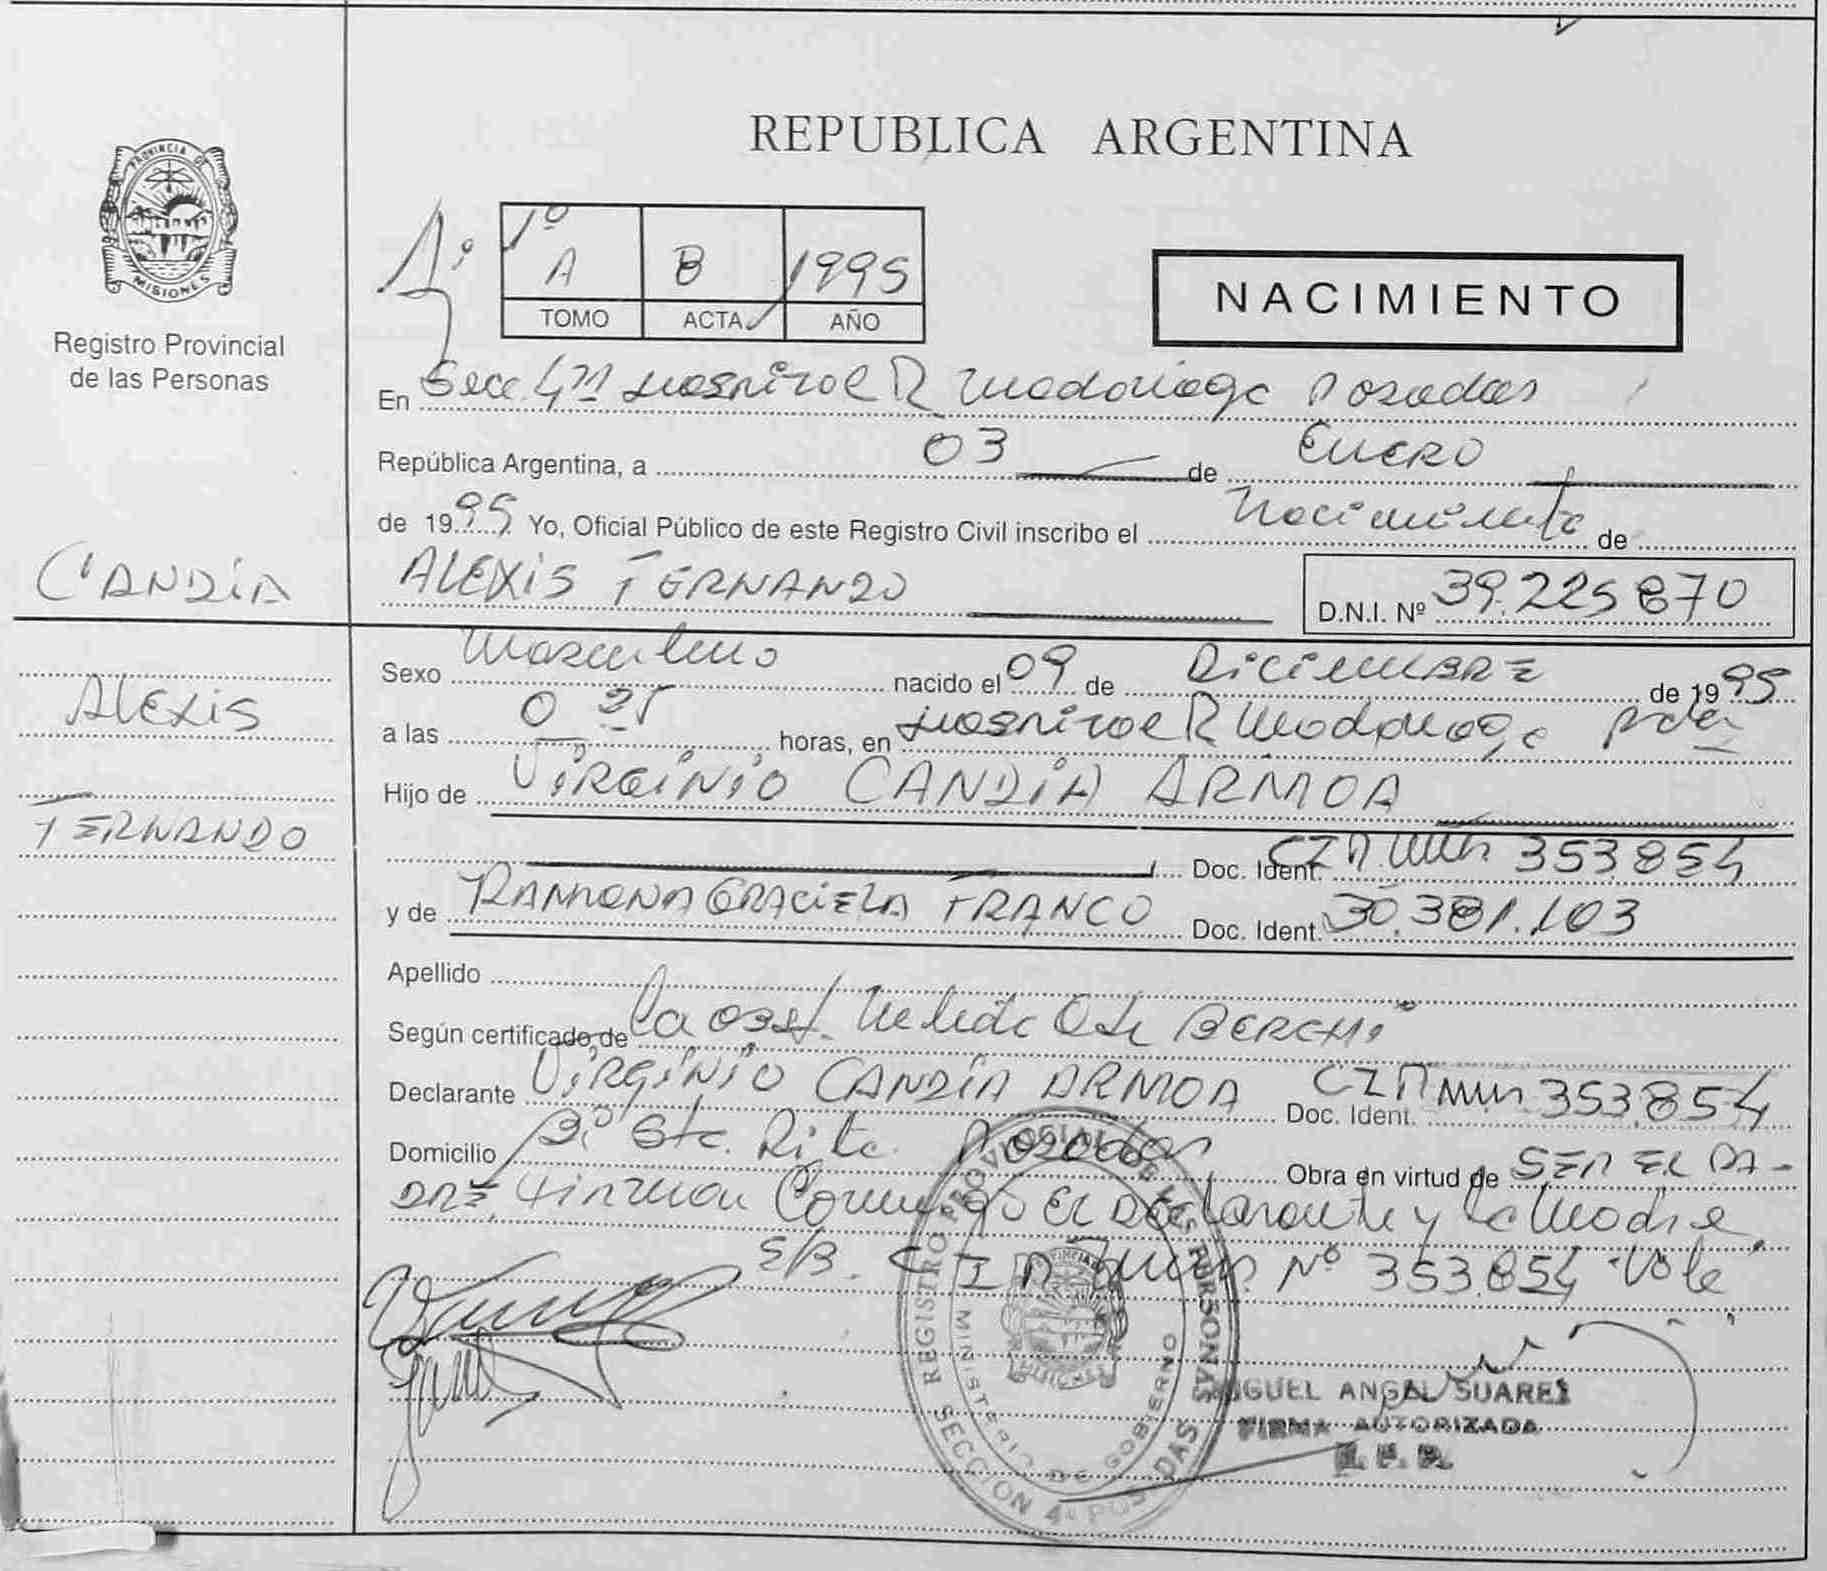 REPUBLICA ARGENTINA
PROVINCIA DE
MISIONES
Registro Provincial
de las Personas
1º
1º
A B 1995
TOMO ACTA AÑO
NACIMIENTO
En Secc 4ta Hospital R Madariaga Posadas
República Argentina, a 03 de ENERO
de 1995 Yo, Oficial Público de este Registro Civil inscribo el Nacimiento de
CANDIA
ALEXIS FERNANDO
D.N.I. Nº 39.225870
ALEXIS
FERNANDO
Sexo Masculino nacido el 09 de DICIEMBRE de 1995
a las 0 25 horas, en Hospital R Madariaga Pdas
Hijo de VIRGINIO CANDIA ARMOA
Doc. Ident. 353.854
y de RAMONA GRACIELA FRANCO Doc. Ident. 30.381.103
Apellido
Según certificado de la obst. Nelida BERCHI
Declarante VIRGINIO CANDIA ARMOA Doc. Ident. 353.854
Domicilio Bº Sta. Rita Posadas Obra en virtud de SER EL PA-
DRE, Firman Conmigo EL Declarante y la Madre
S/B. Nº 353.854 "Vale"
REGISTRO PROVINCIAL DE LAS PERSONAS
MINISTERIO DE GOBIERNO
SECCION 4ª POSADAS
MIGUEL ANGEL SUAREZ
FIRMA AUTORIZADA